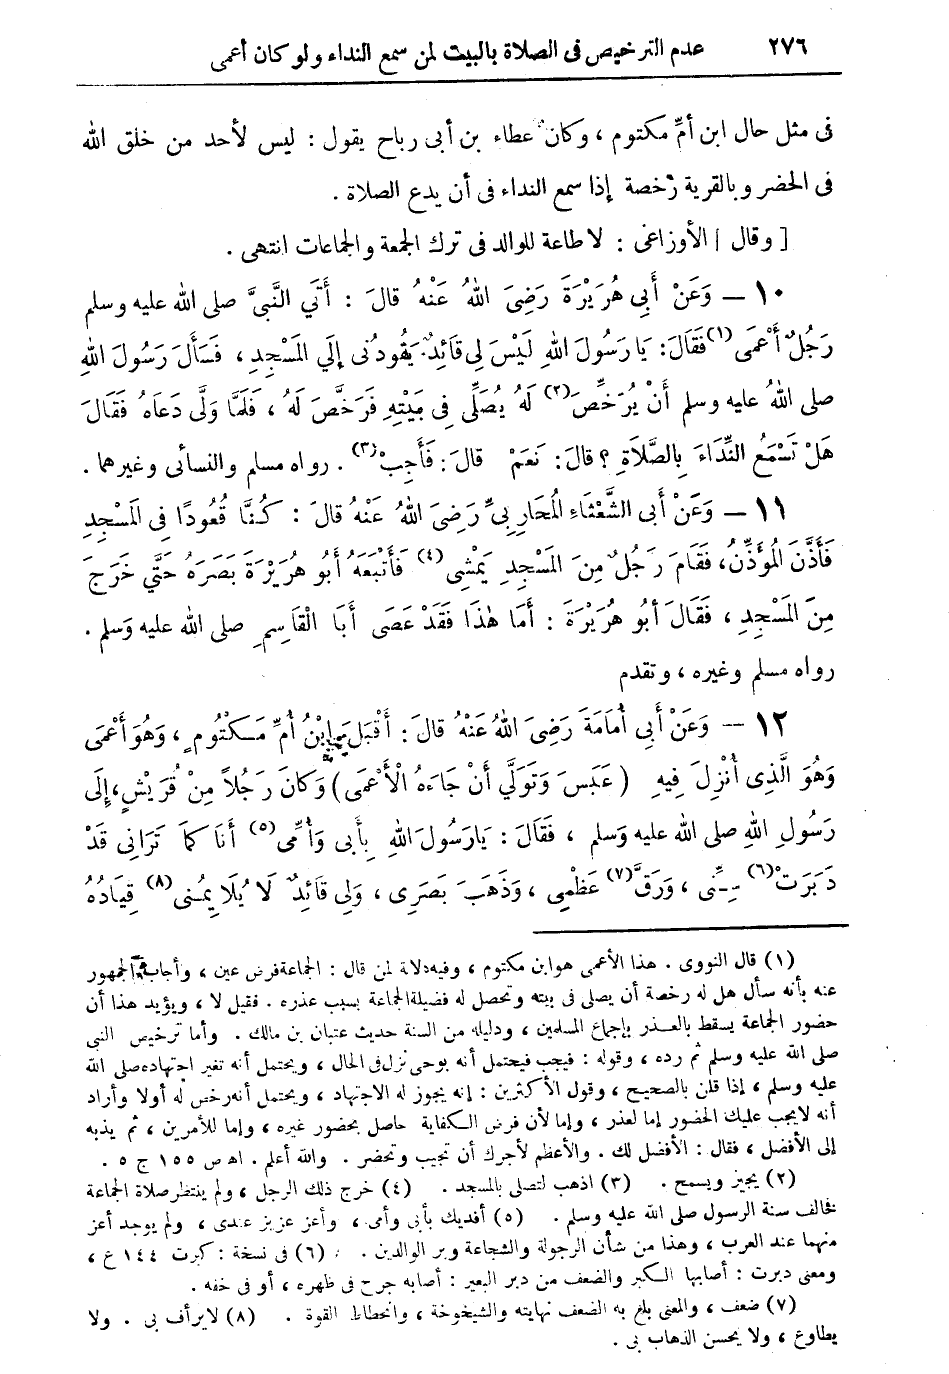 ٢٧٦ عدم الترخيص فى الصلاة بالبيت لمن سمع النداء ولو كان أعمى
فى مثل حال ابن أمِّ مكتوم ، وكان عطاء بن أبى رباح يقول : ليس لأحد من خلق الله
فى الحضر وبالقرية رُخصة إذا سمع النداء فى أن يدع الصلاة .
[ وقال ] الأوزاعى : لا طاعة للوالد فى ترك الجمعة والجماعات انتهى .
١٠ – وَعَنْ أَبِى هُرَيْرَةَ رَضِىَ اللهُ عَنْهُ قالَ : أَتَي النَّبِىَّ صلى الله عليه وسلم
رَجُلٌ أَعْمَى (١) فَقَالَ: يَا رَسُولَ اللهِ لَيْسَ لِى قَائِدٌ يَقُودُنى إِلَي المَسْجِدِ ، فَسَأَلَ رَسُولَ اللهِ
صلى اللهُ عليه وسلم أَنْ يُرَخِّصَ (٢) لَهُ يُصَلِّى فِى بَيْتِهِ فَرَخَّصَ لَهُ ، فَلَمَّا وَلَّى دَعَاهُ فَقَالَ
هَلْ تَسْمَعُ النِّدَاءَ بِالصَّلَاةِ ؟ قالَ: نَعَمْ قالَ: فَأَجِبْ (٣) . رواه مسلم والنسائى وغيرهما .
١١ – وَعَنْ أَبى الشَّعْثَاءِ المُحَارِبىِّ رَضِىَ اللهُ عَنْهُ قالَ : كُنَّا قُعُودًا فِى المَسْجِدِ
فَأَذَّنَ المُؤَذِّنُ، فَقَامَ رَجُلٌ مِنَ المَسْجِدِ يَمْشِى (٤) فَأَتْبَعَهُ أَبُو هُرَيْرَةَ بَصَرَهُ حَتَّي خَرَجَ
مِنَ المَسْجِدِ ، فَقَالَ أَبُو هُرَيْرَةَ : أَمَا هٰذَا فَقَدْ عَصَى أَبَا الْقَاسِمِ صلى الله عليه وَسلم .
رواه مسلم وغيره ، وتقدم
١٢ – وَعَنْ أَبِي أُمَامَةَ رَضِىَ اللهُ عَنْهُ قالَ : أَقْبَلَ ابْنُ أُمِّ مَكْتُومٍ ، وَهُوَ أَعْمَى
وَهُوَ الَّذِى أُنْزِلَ فِيهِ ( عَبَسَ وَتَوَلَّي أَنْ جَاءَهُ الْأَعْمَى ) وَكَانَ رَجُلاً مِنْ قُرَيْشٍ، إِلَى
رَسُولِ اللهِ صلى الله عليه وَسلم ، فَقَالَ : يَارَسُولَ اللهِ بِأَبى وَأُمِّى (٥) أَنَا كَمَا تَرَانِى قَدْ
دَبَرَتْ (٦) سِنِّى ، وَرَقَّ (٧) عَظْمِى ، وَذَهَبَ بَصَرِى ، وَلِى قَائِدٌ لَا يُلَايِمُنى (٨) قِيَادُهُ
(١) قال النووى . هذا الأعمى هو ابن مكتوم ، وفيه دلالة لمن قال : الجماعة فرض عين ، وأجاب الجمهور
عنه بأنه سأل هل له رخصة أن يصلى فى بيته وتحصل له فضيلة الجماعة بسبب عذره . فقيل لا ، ويؤيد هذا أن
حضور الجماعة يسقط بالعذر بإجماع المسلمين ، ودليله من السنة حديث عتبان بن مالك . وأما ترخيص النبى
صلى الله عليه وسلم ثم رده ، وقوله : فيجب فيحتمل أنه بوحى نزل فى الحال ، ويحتمل أنه تغير اجتهاده صلى الله
عليه وسلم ، إذا قلن بالصحيح ، وقول الأكثرين : إنه يجوز له الاجتهاد ، ويحتمل أنه رخص له أولا وأراد
أنه لايجب عليك الحضور إما لعذر ، وإما لأن فرض الكفاية حاصل بحضور غيره ، وإما للأمرين ، ثم يدبه
إلى الأفضل ، فقال : الأفضل لك . والأعظم لأجرك أن تجيب وتحضر . والله أعلم . اهـ ص ١٥٥ ج ٥ .
(٢) يجيز ويسمح . (٣) اذهب لتصلى بالمسجد . (٤) خرج ذلك الرجل ، ولم ينتظر صلاة الجماعة
فخالف سنة الرسول صلى الله عليه وسلم . (٥) أفديك بأبى وأمى ، وأعز عزيز عندى ، ولم يوجد أعز
منهما عند العرب ، وهذا من شأن الرجولة والشجاعة وبر الوالدين . (٦) فى نسخة : كبرت ١٤٤ ع ،
ومعنى دبرت : أصابها الكبر والضعف من دبر البعير : أصابه جرح فى ظهره ، أو فى خفه .
(٧) ضعف ، والمعنى بلغ به الضعف نهايته والشيخوخة ، وانحطاط القوة . (٨) لايرأف بى . ولا
يطاوع ، ولا يحسن الذهاب بى .